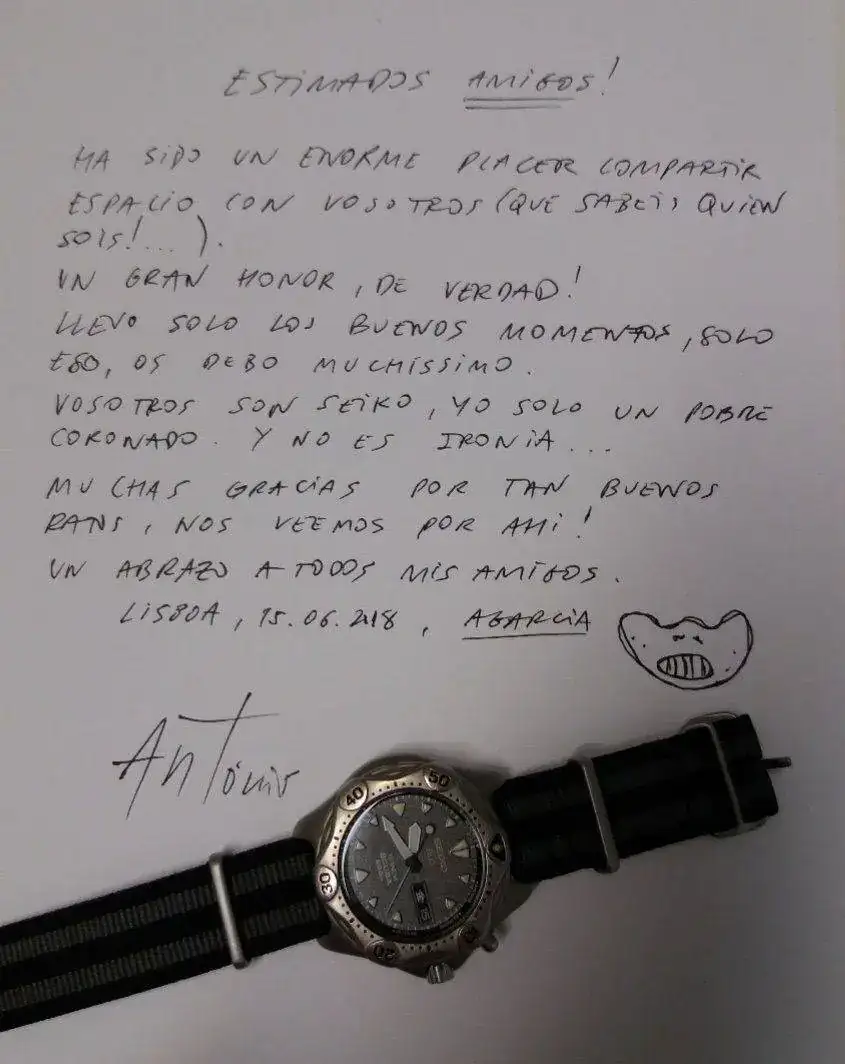 ESTIMADOS AMIGOS!
HA SIDO UN ENORME PLACER COMPARTIR
ESPACIO CON VOSOTROS (QUE SABEIS QUIEN
SOIS!...).
UN GRAN HONOR, DE VERDAD!
LLEVO SOLO LOS BUENOS MOMENTOS, SOLO
ESO, OS DEBO MUCHÍSSIMO.
VOSOTROS SON SEIKO, YO SOLO UN POBRE
CORONADO. Y NO ES IRONIA...
MUCHAS GRACIAS POR TAN BUENOS
RATOS, NOS VEEMOS POR AHI!
UN ABRAZO A TODOS MIS AMIGOS.
LISBOA, 15.06.2018, AGARCIA
António
50
40
30
20
10
SEIKO